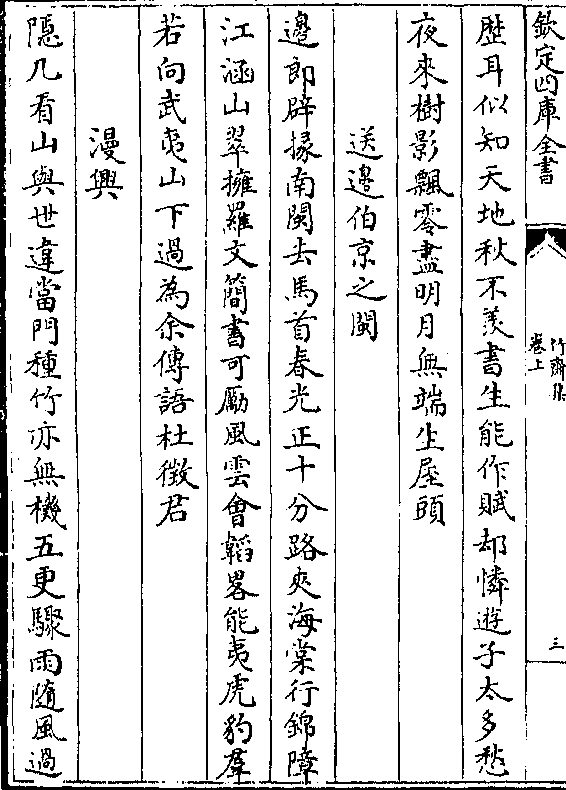 欽定四庫全書
竹齋集
卷上
三
歴耳似知天地秋不羨書生能作賦却憐遊子太多愁
夜來樹影飄零盡明月無端生屋頭
送邊伯京之閩
邊郎辟掾南閩去馬首春光正十分路夾海棠行錦障
江涵山翠擁羅文簡書可勵風雲㑹韜畧能夷虎豹羣
若向武夷山下過為余傳語杜徴君
漫興
隠几看山與世違當門種竹亦無機五更驟雨随風過